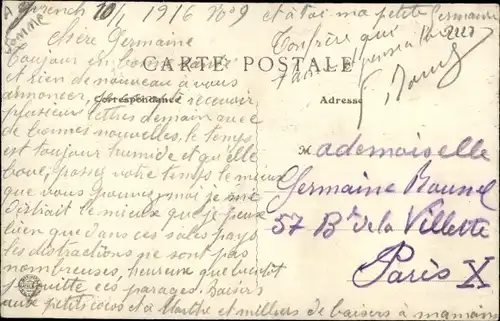 A French 10/1 1916 No 9
Somme
Chère Germaine
Toujours en bonne santé
et rien de nouveau à vous
annoncer recevoir
plusieurs lettres demain avec
de bonnes nouvelles. le temps
est toujours humide et quelle
boue, passez votre temps le mieux
que vous pouvez moi je me
distrait le mieux que je peux
bien que dans ces sales pays
les distractions ne sont pas
nombreuses, heureux que bientôt
je quitte ces parages. Baisers
aux petits cocos et à Marthe et milliers de baisers à maman
et à toi ma petite Germaine
Ton frère qui
pense
CARTE POSTALE
Correspondance
Adresse
Mademoiselle
Germaine
57 Bd de la Villette
Paris X